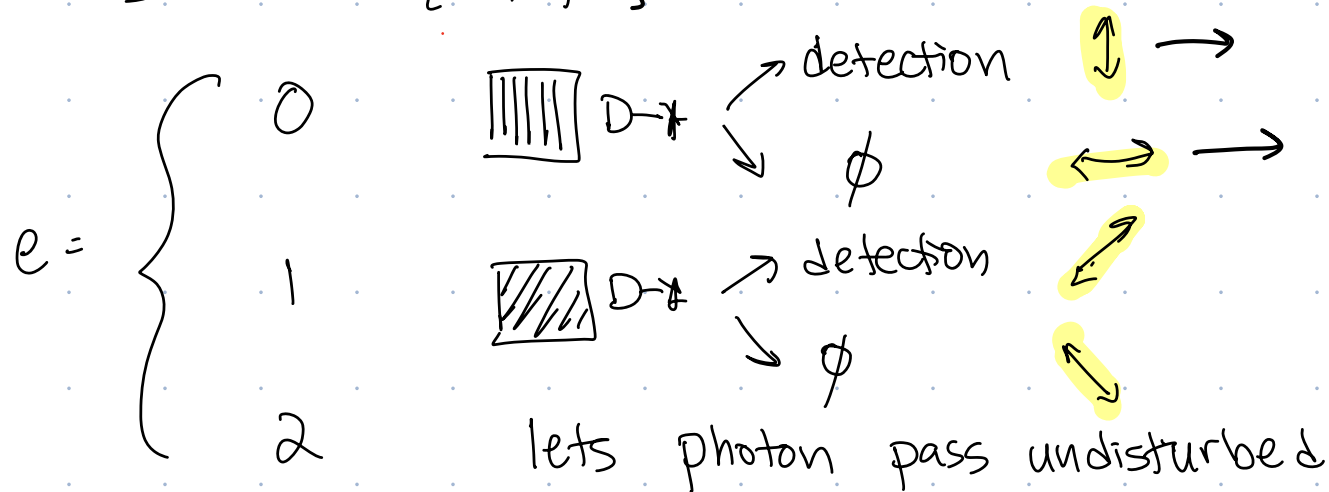 0 D detection
ϕ
e =
1 D detection
ϕ
2 lets photon pass undisturbed